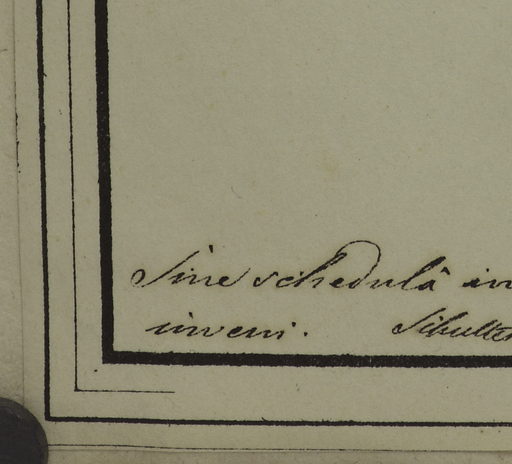 Sine schedulâ in
inveni. Schultes